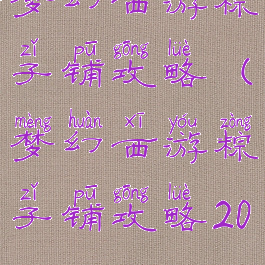 梦幻西游粽
zǐ pū gōng lüè
子铺攻略（
mèng huàn xī yóu zòng
梦幻西游粽
zǐ pū gōng lüè
子铺攻略20